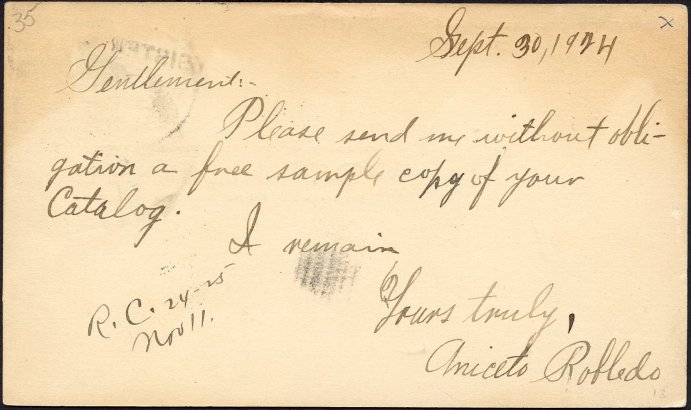 35
x
Sept. 30, 1924
Gentlemen:-
Please send me without obli-
gation a free sample copy of your
Catalog.
I remain
R. C. 24-25
Nov 11.
Yours truly,
Aniceto Robledo
13